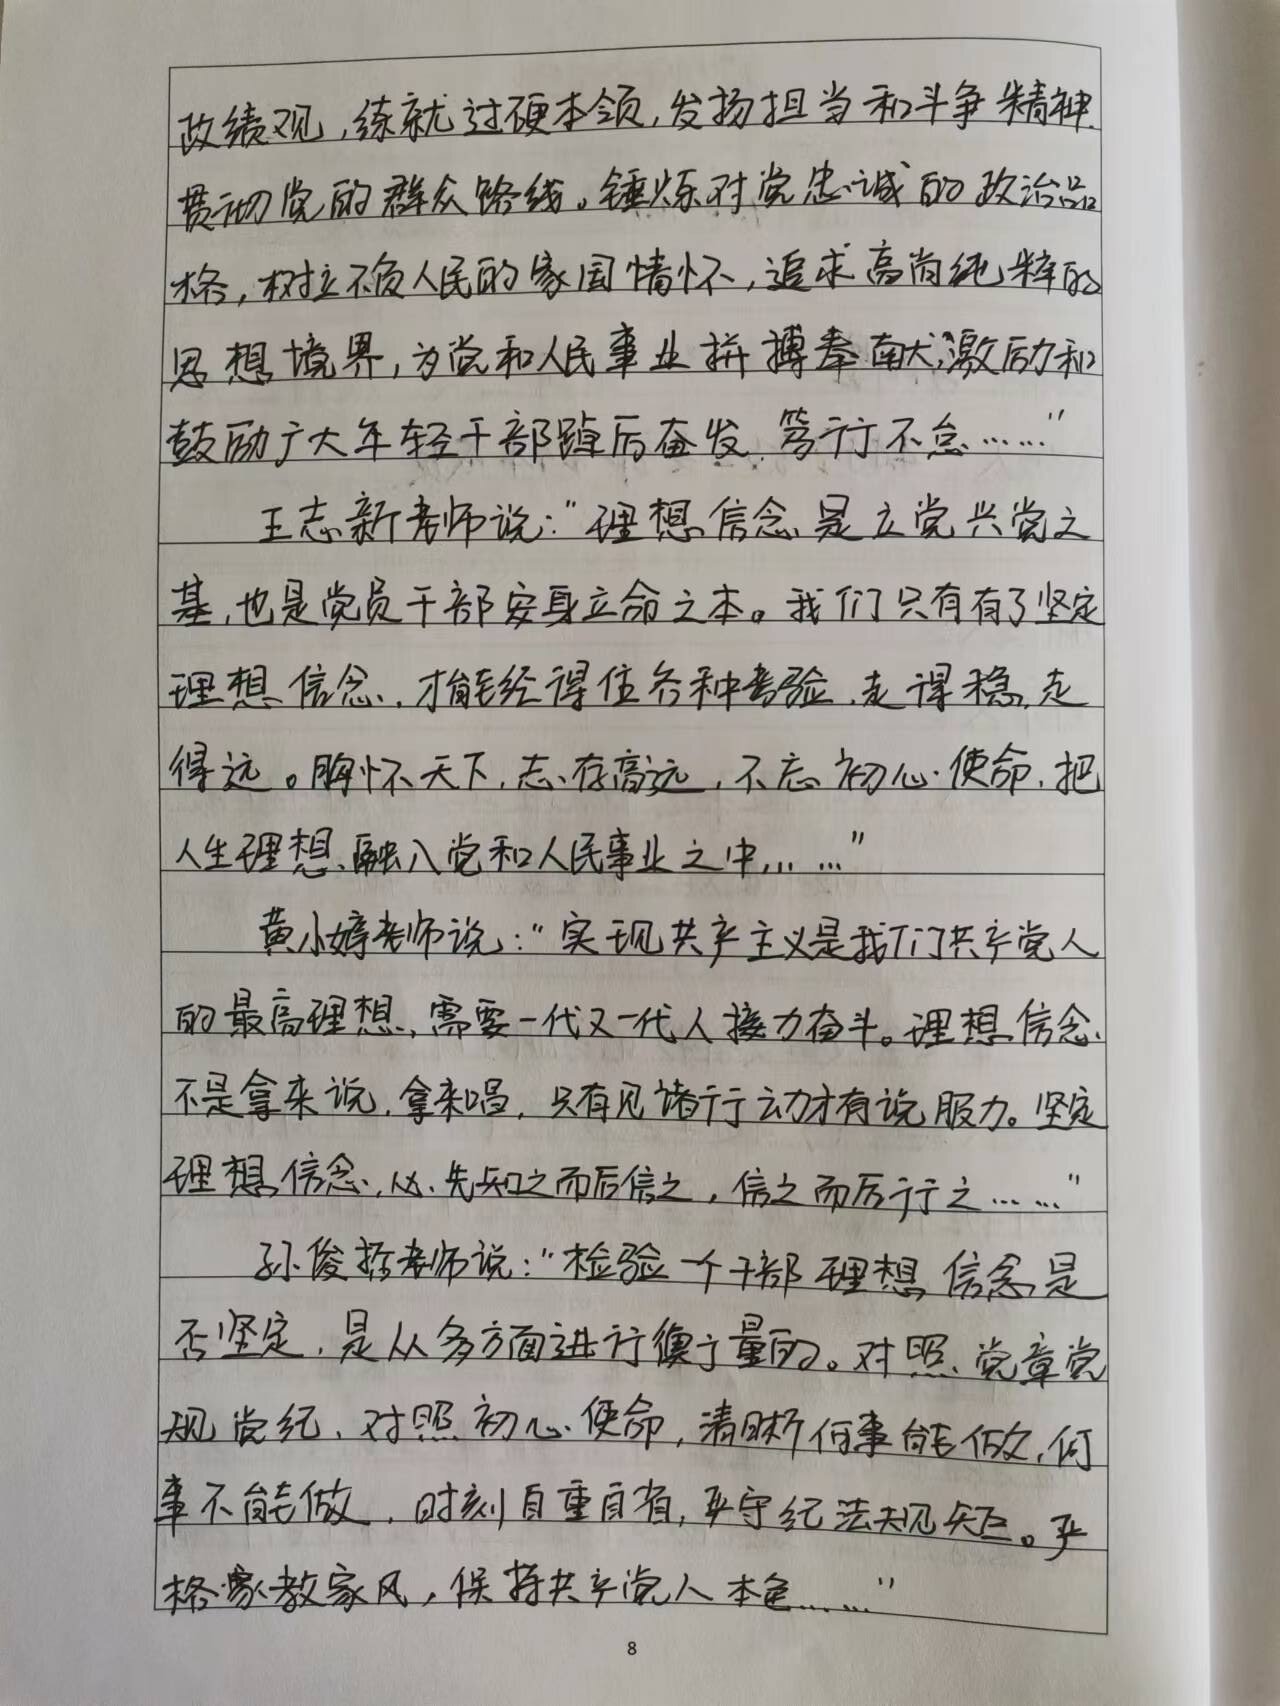 政绩观，练就过硬本领，发扬担当和斗争精神.
贯彻党的群众路线。锤炼对党忠诚的政治品
格，树立不负人民的家国情怀，追求高尚纯粹的
思想境界，为党和人民事业拼搏奉献，激励和
鼓励广大年轻干部踔厉奋发、笃行不怠……"
王志新老师说："理想信念是立党兴党之
基，也是党员干部安身立命之本。我们只有有了坚定
理想信念，才能经得住各种考验，走得稳，走
得远。胸怀天下，志存高远，不忘初心使命，把
人生理想融入党和人民事业之中……"
黄小婷老师说："实现共产主义是我们共产党人
的最高理想，需要一代又一代人接力奋斗。理想信念
不是拿来说，拿来唱，只有见诸行动才有说服力。坚定
理想信念，必先知之而后信之，信之而后行之……"
孙俊哲老师说："检验一个干部理想信念是
否坚定，是从多方面进行衡量的。对照党章党
规党纪，对照初心使命，清晰何事能做，何
事不能做，时刻自重自省，严守纪法规矩。严
格家教家风，保持共产党人本色……"
8